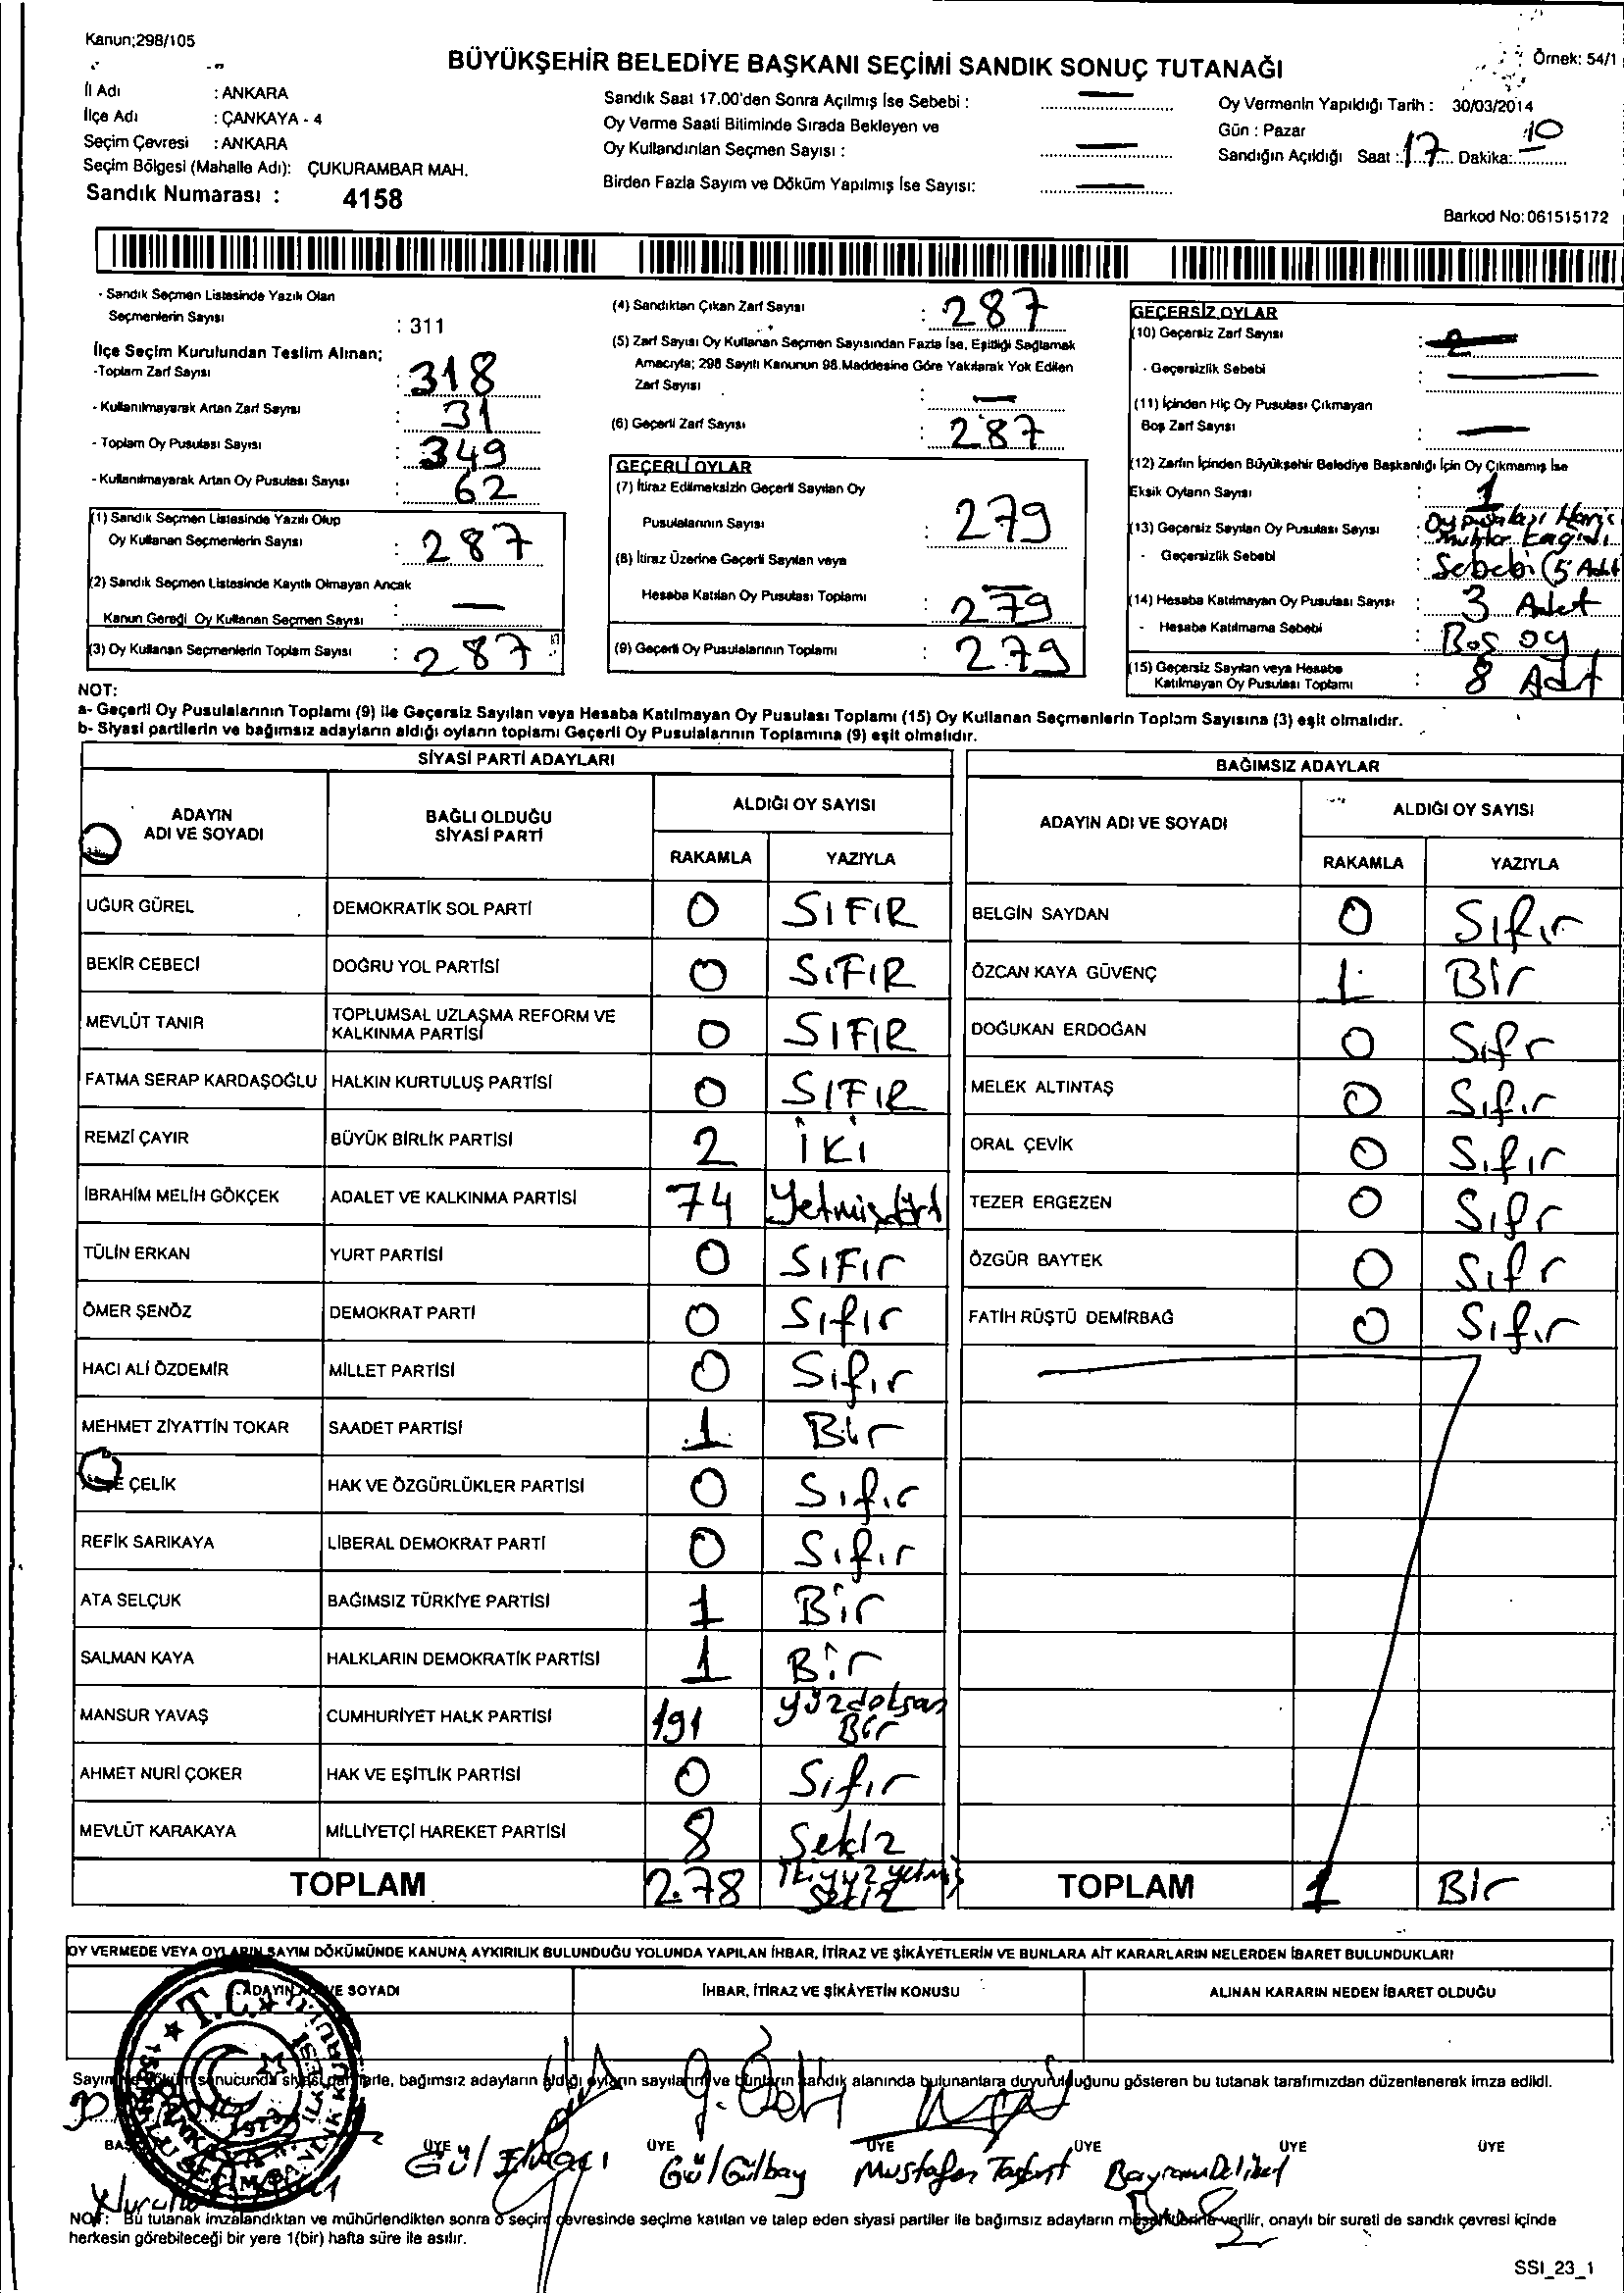 Kanun;298/105
BÜYÜKŞEHİR BELEDİYE BAŞKANI SEÇİMİ SANDIK SONUÇ TUTANAĞI
Örnek: 54/1
İl Adı : ANKARA
İlçe Adı : ÇANKAYA - 4
Seçim Çevresi : ANKARA
Seçim Bölgesi (Mahalle Adı): ÇUKURAMBAR MAH.
Sandık Numarası : 4158
Sandık Saat 17.00'den Sonra Açılmış İse Sebebi :
Oy Verme Saati Bitiminde Sırada Bekleyen ve
Oy Kullandırılan Seçmen Sayısı :
Birden Fazla Sayım ve Döküm Yapılmış İse Sayısı:
Oy Vermenin Yapıldığı Tarih : 30/03/2014
Gün : Pazar
Sandığın Açıldığı Saat : 17 Dakika: 10
Barkod No: 061515172
- Sandık Seçmen Listesinde Yazılı Olan
Seçmenlerin Sayısı : 311
İlçe Seçim Kurulundan Teslim Alınan;
-Toplam Zarf Sayısı : 318
- Kullanılmayarak Artan Zarf Sayısı : 31
- Toplam Oy Pusulası Sayısı : 349
- Kullanılmayarak Artan Oy Pusulası Sayısı : 62
(1) Sandık Seçmen Listesinde Yazılı Olup
Oy Kullanan Seçmenlerin Sayısı : 287
(2) Sandık Seçmen Listesinde Kayıtlı Olmayan Ancak
Kanun Gereği Oy Kullanan Seçmen Sayısı : —
(3) Oy Kullanan Seçmenlerin Toplam Sayısı : 287
(4) Sandıktan Çıkan Zarf Sayısı : 287
(5) Zarf Sayısı Oy Kullanan Seçmen Sayısından Fazla İse, Eşitliği Sağlamak
Amacıyla; 298 Sayılı Kanunun 98.Maddesine Göre Yakılarak Yok Edilen
Zarf Sayısı : —
(6) Geçerli Zarf Sayısı : 287
GEÇERLİ OYLAR
(7) İtiraz Edilmeksizin Geçerli Sayılan Oy
Pusulalarının Sayısı : 279
(8) İtiraz Üzerine Geçerli Sayılan veya
Hesaba Katılan Oy Pusulası Toplamı : 279
(9) Geçerli Oy Pusulalarının Toplamı : 279
GEÇERSİZ OYLAR
(10) Geçersiz Zarf Sayısı :
- Geçersizlik Sebebi : —
(11) İçinden Hiç Oy Pusulası Çıkmayan
Boş Zarf Sayısı : —
(12) Zarfın İçinden Büyükşehir Belediye Başkanlığı İçin Oy Çıkmamış İse
Eksik Oyların Sayısı : 1
(13) Geçersiz Sayılan Oy Pusulası Sayısı :
- Geçersizlik Sebebi : Sebebi (5 Adet
(14) Hesaba Katılmayan Oy Pusulası Sayısı : 3 Adet
- Hesaba Katılmama Sebebi : Boş oy
(15) Geçersiz Sayılan veya Hesaba
Katılmayan Oy Pusulası Toplamı : 8 Adet
NOT:
a- Geçerli Oy Pusulalarının Toplamı (9) ile Geçersiz Sayılan veya Hesaba Katılmayan Oy Pusulası Toplamı (15) Oy Kullanan Seçmenlerin Toplam Sayısına (3) eşit olmalıdır.
b- Siyasi partilerin ve bağımsız adayların aldığı oyların toplamı Geçerli Oy Pusulalarının Toplamına (9) eşit olmalıdır.
SİYASİ PARTİ ADAYLARI
ADAYIN ADI VE SOYADI BAĞLI OLDUĞU SİYASİ PARTİ ALDIĞI OY SAYISI
RAKAMLA YAZIYLA
UĞUR GÜREL DEMOKRATİK SOL PARTİ 0 SIFIR
BEKİR CEBECİ DOĞRU YOL PARTİSİ 0 SIFIR
MEVLÜT TANIR TOPLUMSAL UZLAŞMA REFORM VE KALKINMA PARTİSİ 0 SIFIR
FATMA SERAP KARDAŞOĞLU HALKIN KURTULUŞ PARTİSİ 0 SIFIR
REMZİ ÇAYIR BÜYÜK BİRLİK PARTİSİ 2 İKİ
İBRAHİM MELİH GÖKÇEK ADALET VE KALKINMA PARTİSİ 74 Yetmişdört
TÜLİN ERKAN YURT PARTİSİ 0 SIFIr
ÖMER ŞENÖZ DEMOKRAT PARTİ 0 Sıfır
HACI ALİ ÖZDEMİR MİLLET PARTİSİ 0 Sıfır
MEHMET ZİYATTİN TOKAR SAADET PARTİSİ 1 Bir
ÇELİK HAK VE ÖZGÜRLÜKLER PARTİSİ 0 Sıfır
REFİK SARIKAYA LİBERAL DEMOKRAT PARTİ 0 Sıfır
ATA SELÇUK BAĞIMSIZ TÜRKİYE PARTİSİ 1 Bir
SALMAN KAYA HALKLARIN DEMOKRATİK PARTİSİ 1 Bir
MANSUR YAVAŞ CUMHURİYET HALK PARTİSİ 191 yüzdoksan Bir
AHMET NURİ ÇOKER HAK VE EŞİTLİK PARTİSİ 0 Sıfır
MEVLÜT KARAKAYA MİLLİYETÇİ HAREKET PARTİSİ 8 Sekiz
TOPLAM 278 İkiyüz yetmiş sekiz
BAĞIMSIZ ADAYLAR
ADAYIN ADI VE SOYADI ALDIĞI OY SAYISI
RAKAMLA YAZIYLA
BELGİN SAYDAN 0 Sıfır
ÖZCAN KAYA GÜVENÇ 1 Bir
DOĞUKAN ERDOĞAN 0 Sıfr
MELEK ALTINTAŞ 0 Sıfır
ORAL ÇEVİK 0 Sıfır
TEZER ERGEZEN 0 Sıfr
ÖZGÜR BAYTEK 0 Sıfr
FATİH RÜŞTÜ DEMİRBAĞ 0 Sıfır
TOPLAM 1 Bir
OY VERMEDE VEYA OYLARIN SAYIM DÖKÜMÜNDE KANUNA AYKIRILIK BULUNDUĞU YOLUNDA YAPILAN İHBAR, İTİRAZ VE ŞİKÂYETLERİN VE BUNLARA AİT KARARLARIN NELERDEN İBARET BULUNDUKLARI
ADAYIN ADI VE SOYADI İHBAR, İTİRAZ VE ŞİKÂYETİN KONUSU ALINAN KARARIN NEDEN İBARET OLDUĞU
Sayım ve döküm sonucunda siyasi partilerle, bağımsız adayların aldığı oyların sayılarını ve bunların sandık alanında bulunanlara duyurulduğunu gösteren bu tutanak tarafımızdan düzenlenerek imza edildi.
T.C.
ÜYE ÜYE ÜYE ÜYE ÜYE ÜYE
Gül Gül Gülbay Mustafa Bayram
NOT: Bu tutanak imzalandıktan ve mühürlendikten sonra o seçim çevresinde seçime katılan ve talep eden siyasi partiler ile bağımsız adayların müşahitlerine verilir, onaylı bir sureti de sandık çevresi içinde
herkesin görebileceği bir yere 1(bir) hafta süre ile asılır.
SSI_23_1